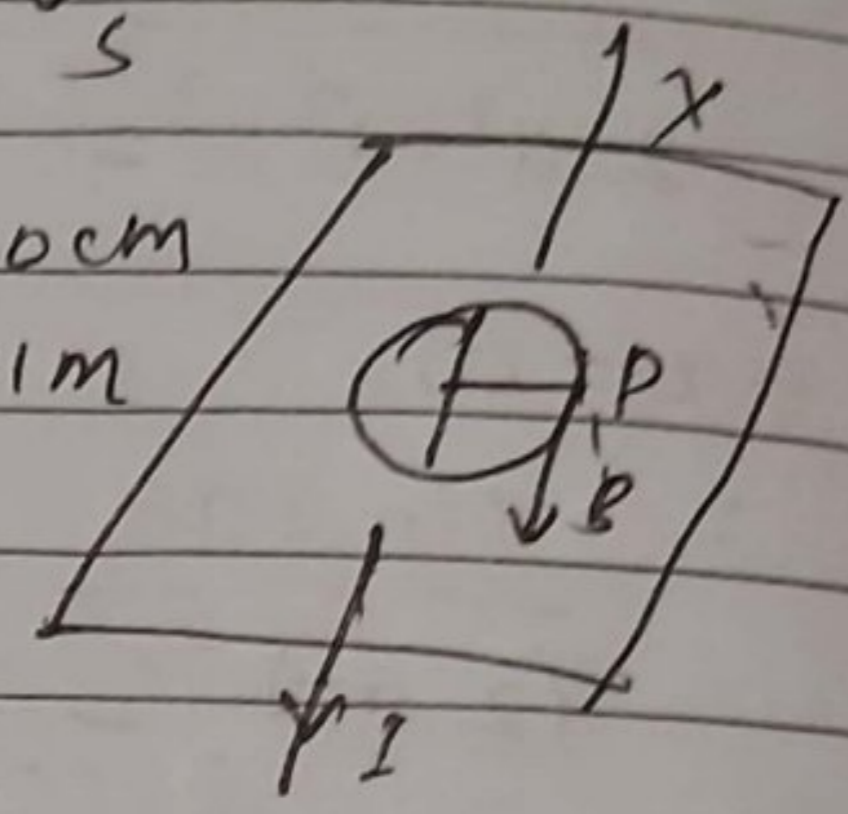 S
X
0cm
1m
P
B
I